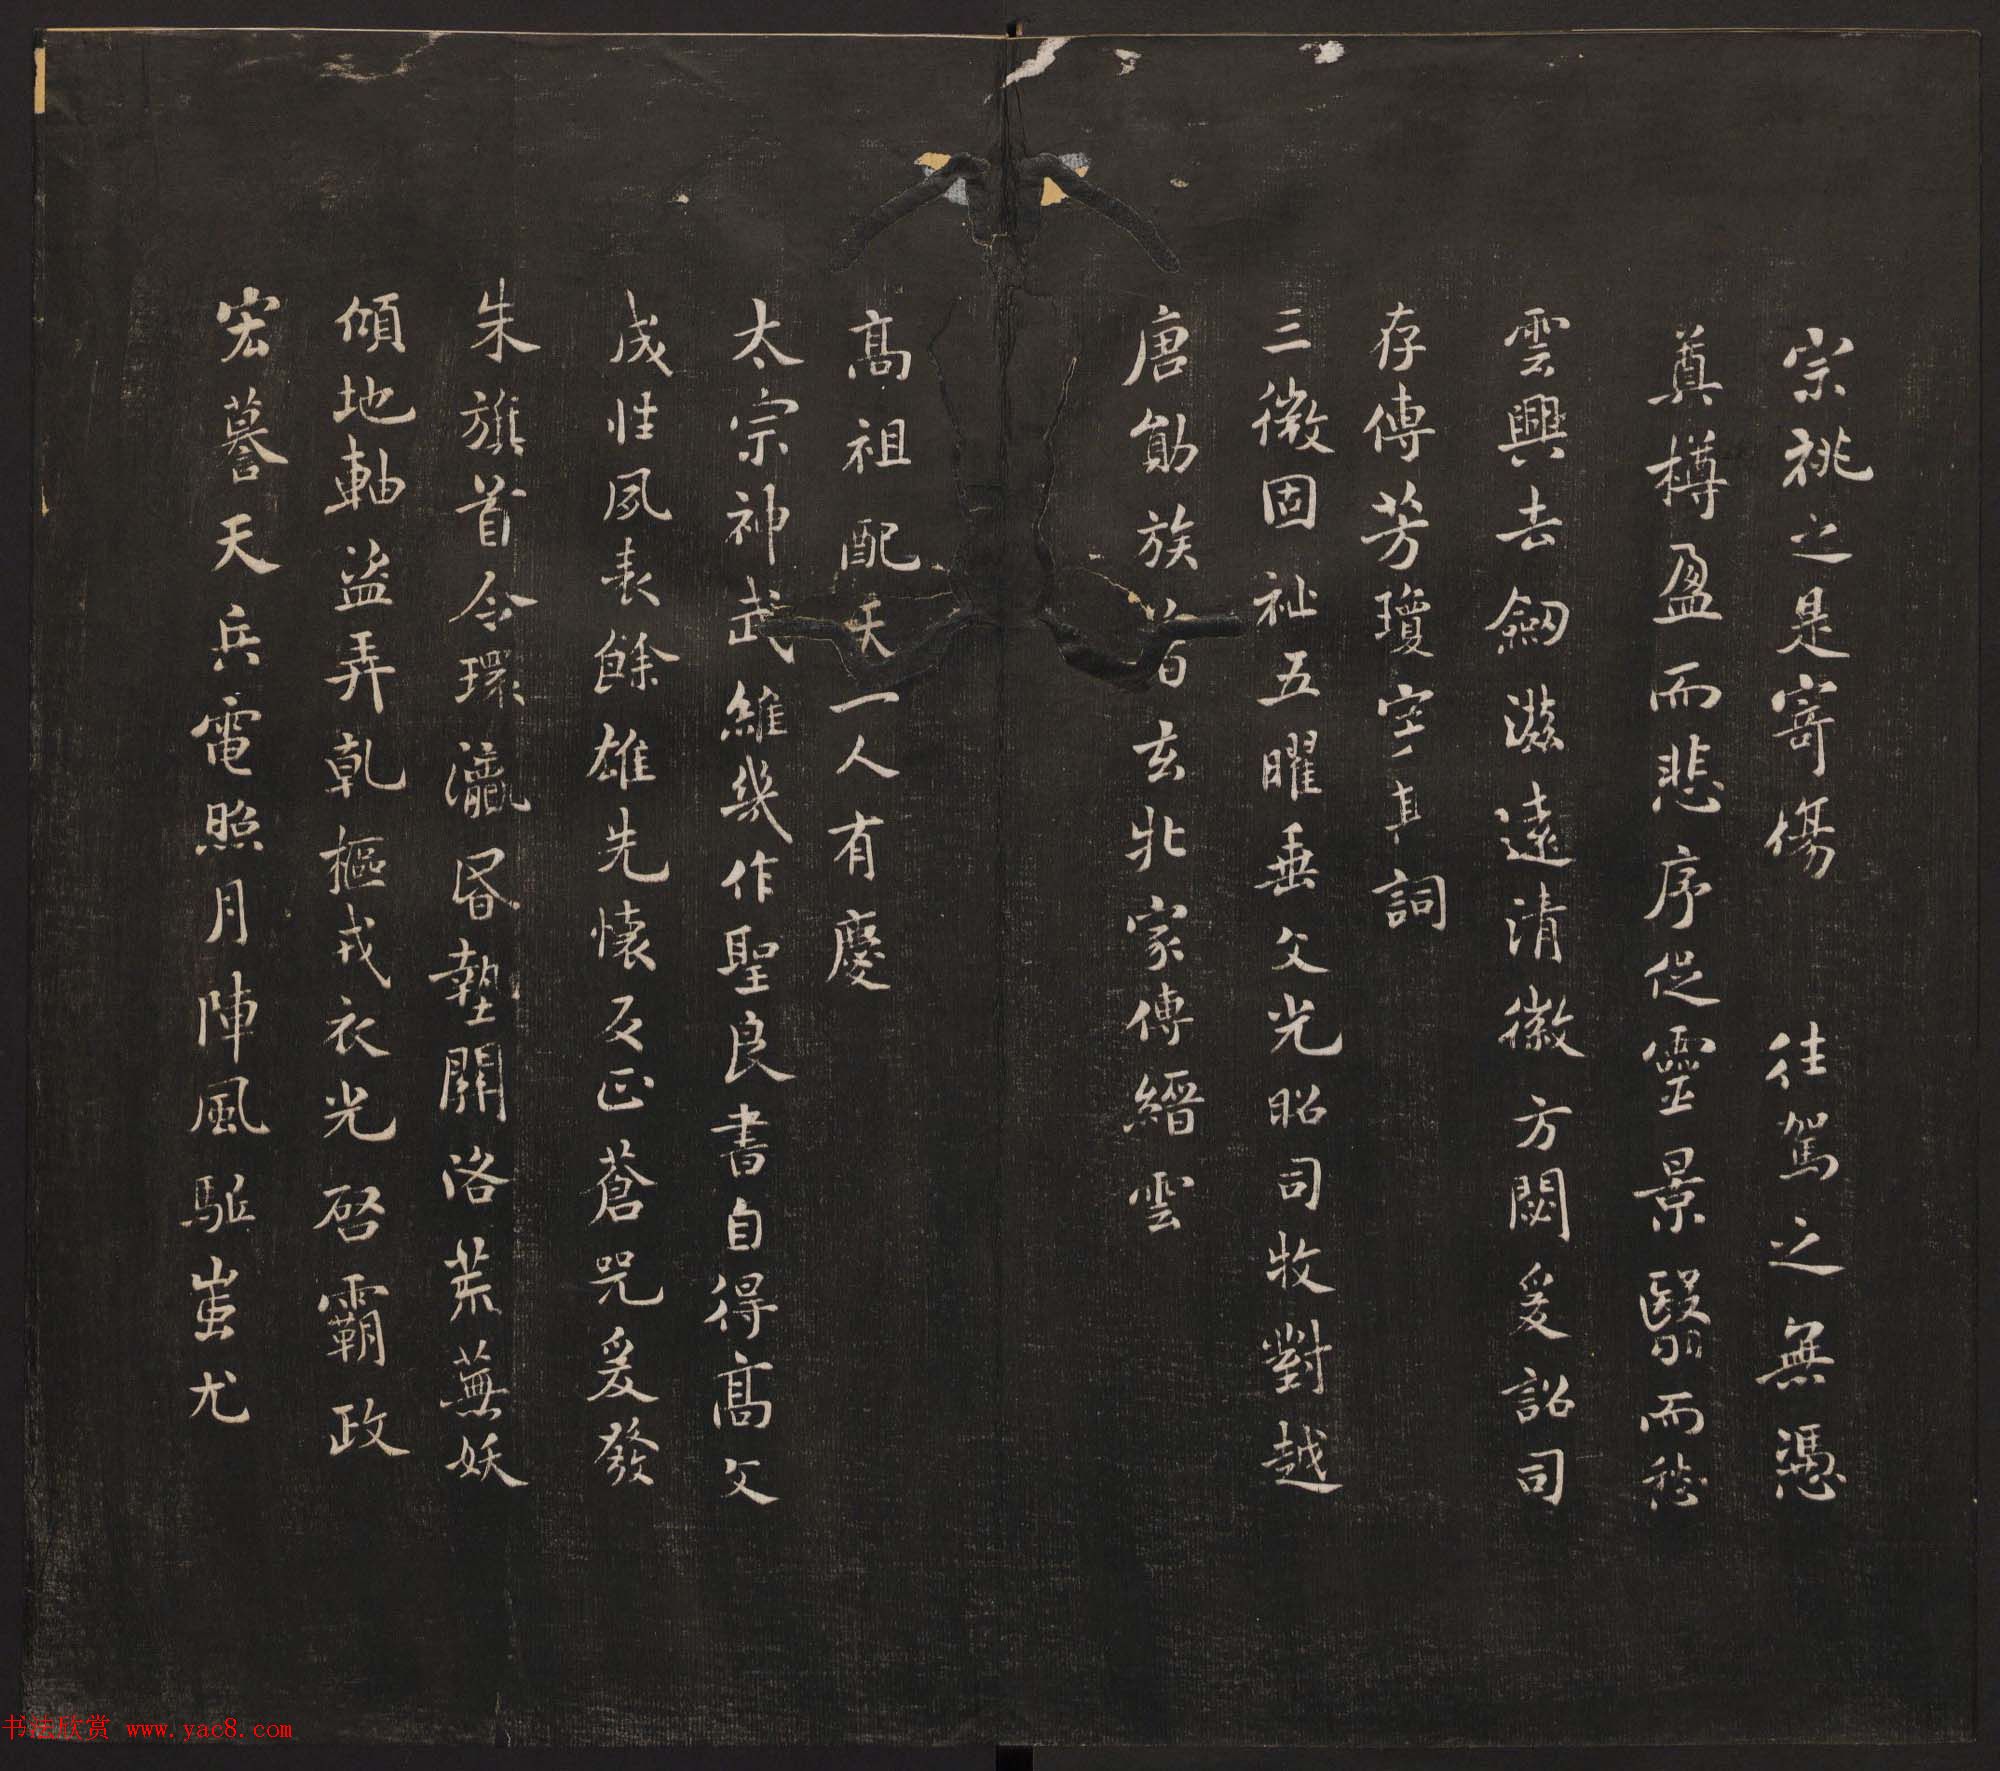 宗祧之是寄傷　往駕之無憑
奠樽盈而悲序促靈景翳而愁
雲興去劒滋遠清徽方閟爰詔司
存傳芳瓊宇其詞
三微固祉五曜垂文光昭司牧對越
唐勛族著自玄北家傳縉雲
高祖配天一人有慶
太宗神武維幾作聖良書自得高文
成性夙表餘雄先懷反正蒼咒爰發
朱旗首令環瀛昬墊關洛荒蕪妖
傾地軸盜弄乹樞戎衣光啓霸政
宏謩天兵電照月陣風駈蚩尤
书法欣赏 www.yac8.com